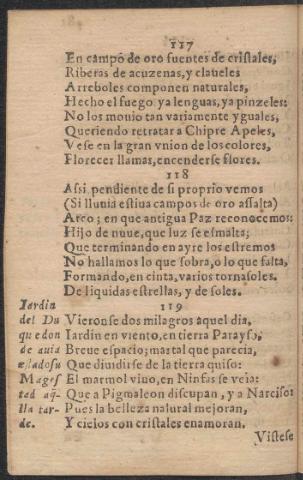 117
En campo de oro fuentes de cristales,
Riberas de açuzenas, y claueles
Arreboles componen naturales,
Hecho el fuego ya lenguas, ya pinzeles:
No los mouio tan variamente yguales,
Queriendo retratar a Chipre Apeles,
Vese en la gran vnion de los colores,
Florecer llamas, encenderse flores.
118
Assi pendiente de si proprio vemos
(Si lluuia estiua campos de oro assalta)
Arco; en que antigua Paz reconocemos:
Hijo de nuue, que luz se esmalta;
Que terminando en ayre los estremos
No hallamos lo que sobra, o lo que falta,
Formando, en cinta, varios tornasoles.
De liquidas estrellas, y de soles.
119
Vieronse dos milagros aquel dia,
Iardin en viento, en tierra Parayso,
Breue espacio; mas tal que parecia,
Que diuidirse de la tierra quiso:
El marmol viuo, en Ninfas se veia:
Que a Pigmaleon disculpan, y a Narciso:
Pues la belleza natural mejoran,
Y cielos con cristales enamoran.
Iardin
del Du
que don
de auia
estado su
Mages
tad aq-
lla tar-
de.
Vistese